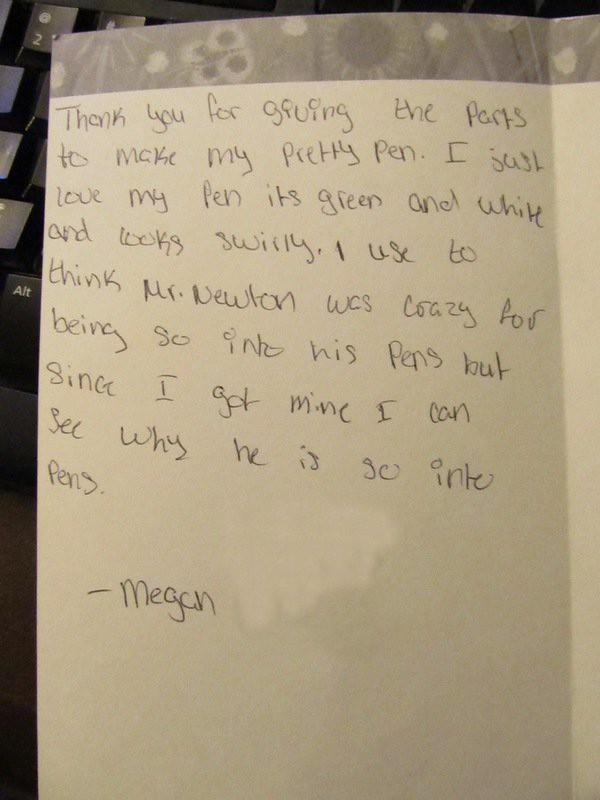 Thank you for giving the parts
to make my pretty pen. I just
love my pen its green and white
and looks swirly. I use to
think Mr. Newton was crazy for
being so into his pens but
since I got mine I can
see why he is so into
pens.
- Megan
@
2
Alt